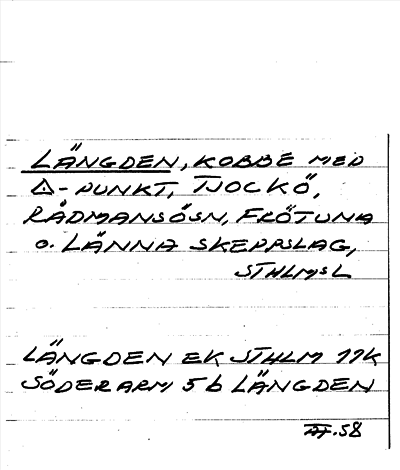 LÄNGDEN, KOBBE MED
△-PUNKT, TJOCKÖ,
RÅDMANSÖSN, FRÖTUNA
o. LÄNNA SKEPPSLAG,
STHLMSL
LÄNGDEN EK STHLM 11K
SÖDERARM 5b LÄNGDEN
.58